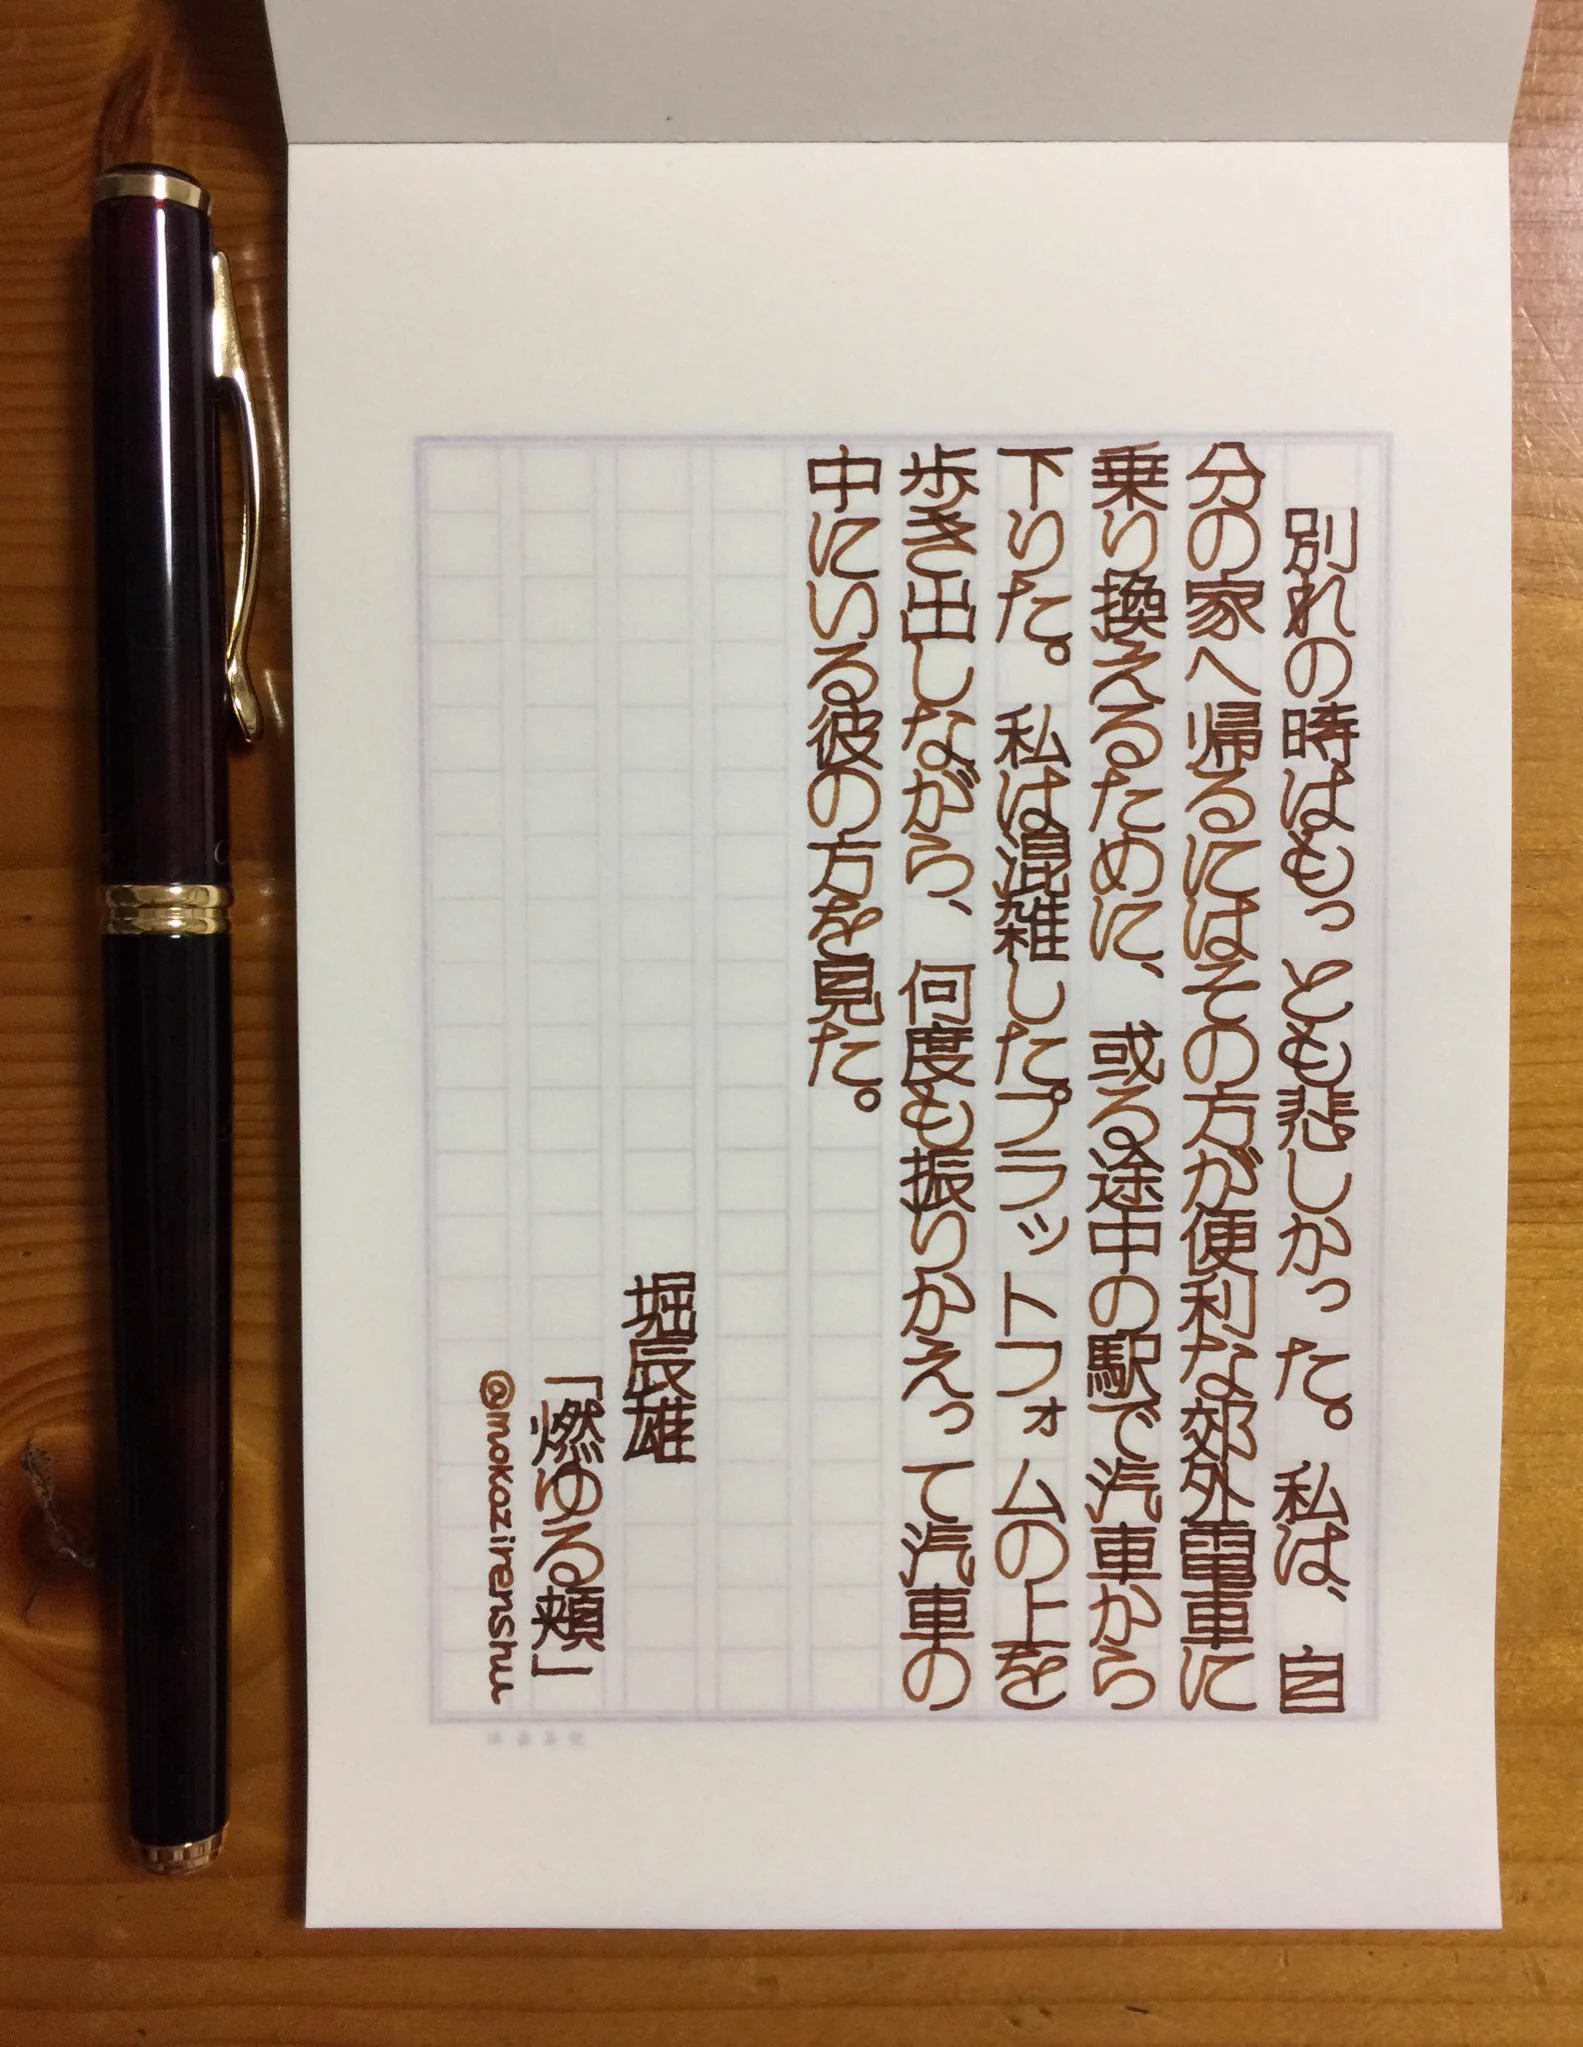 別れの時はもっとも悲しかった。私は、自
分の家へ帰るにはその方が便利な郊外電車に
乗り換えるために、或る途中の駅で汽車から
下りた。私は混雑したプラットフォムの上を
歩き出しながら、何度も振りかえって汽車の
中にいる彼の方を見た。
堀辰雄
「燃ゆる頬」
@mokazirenshu